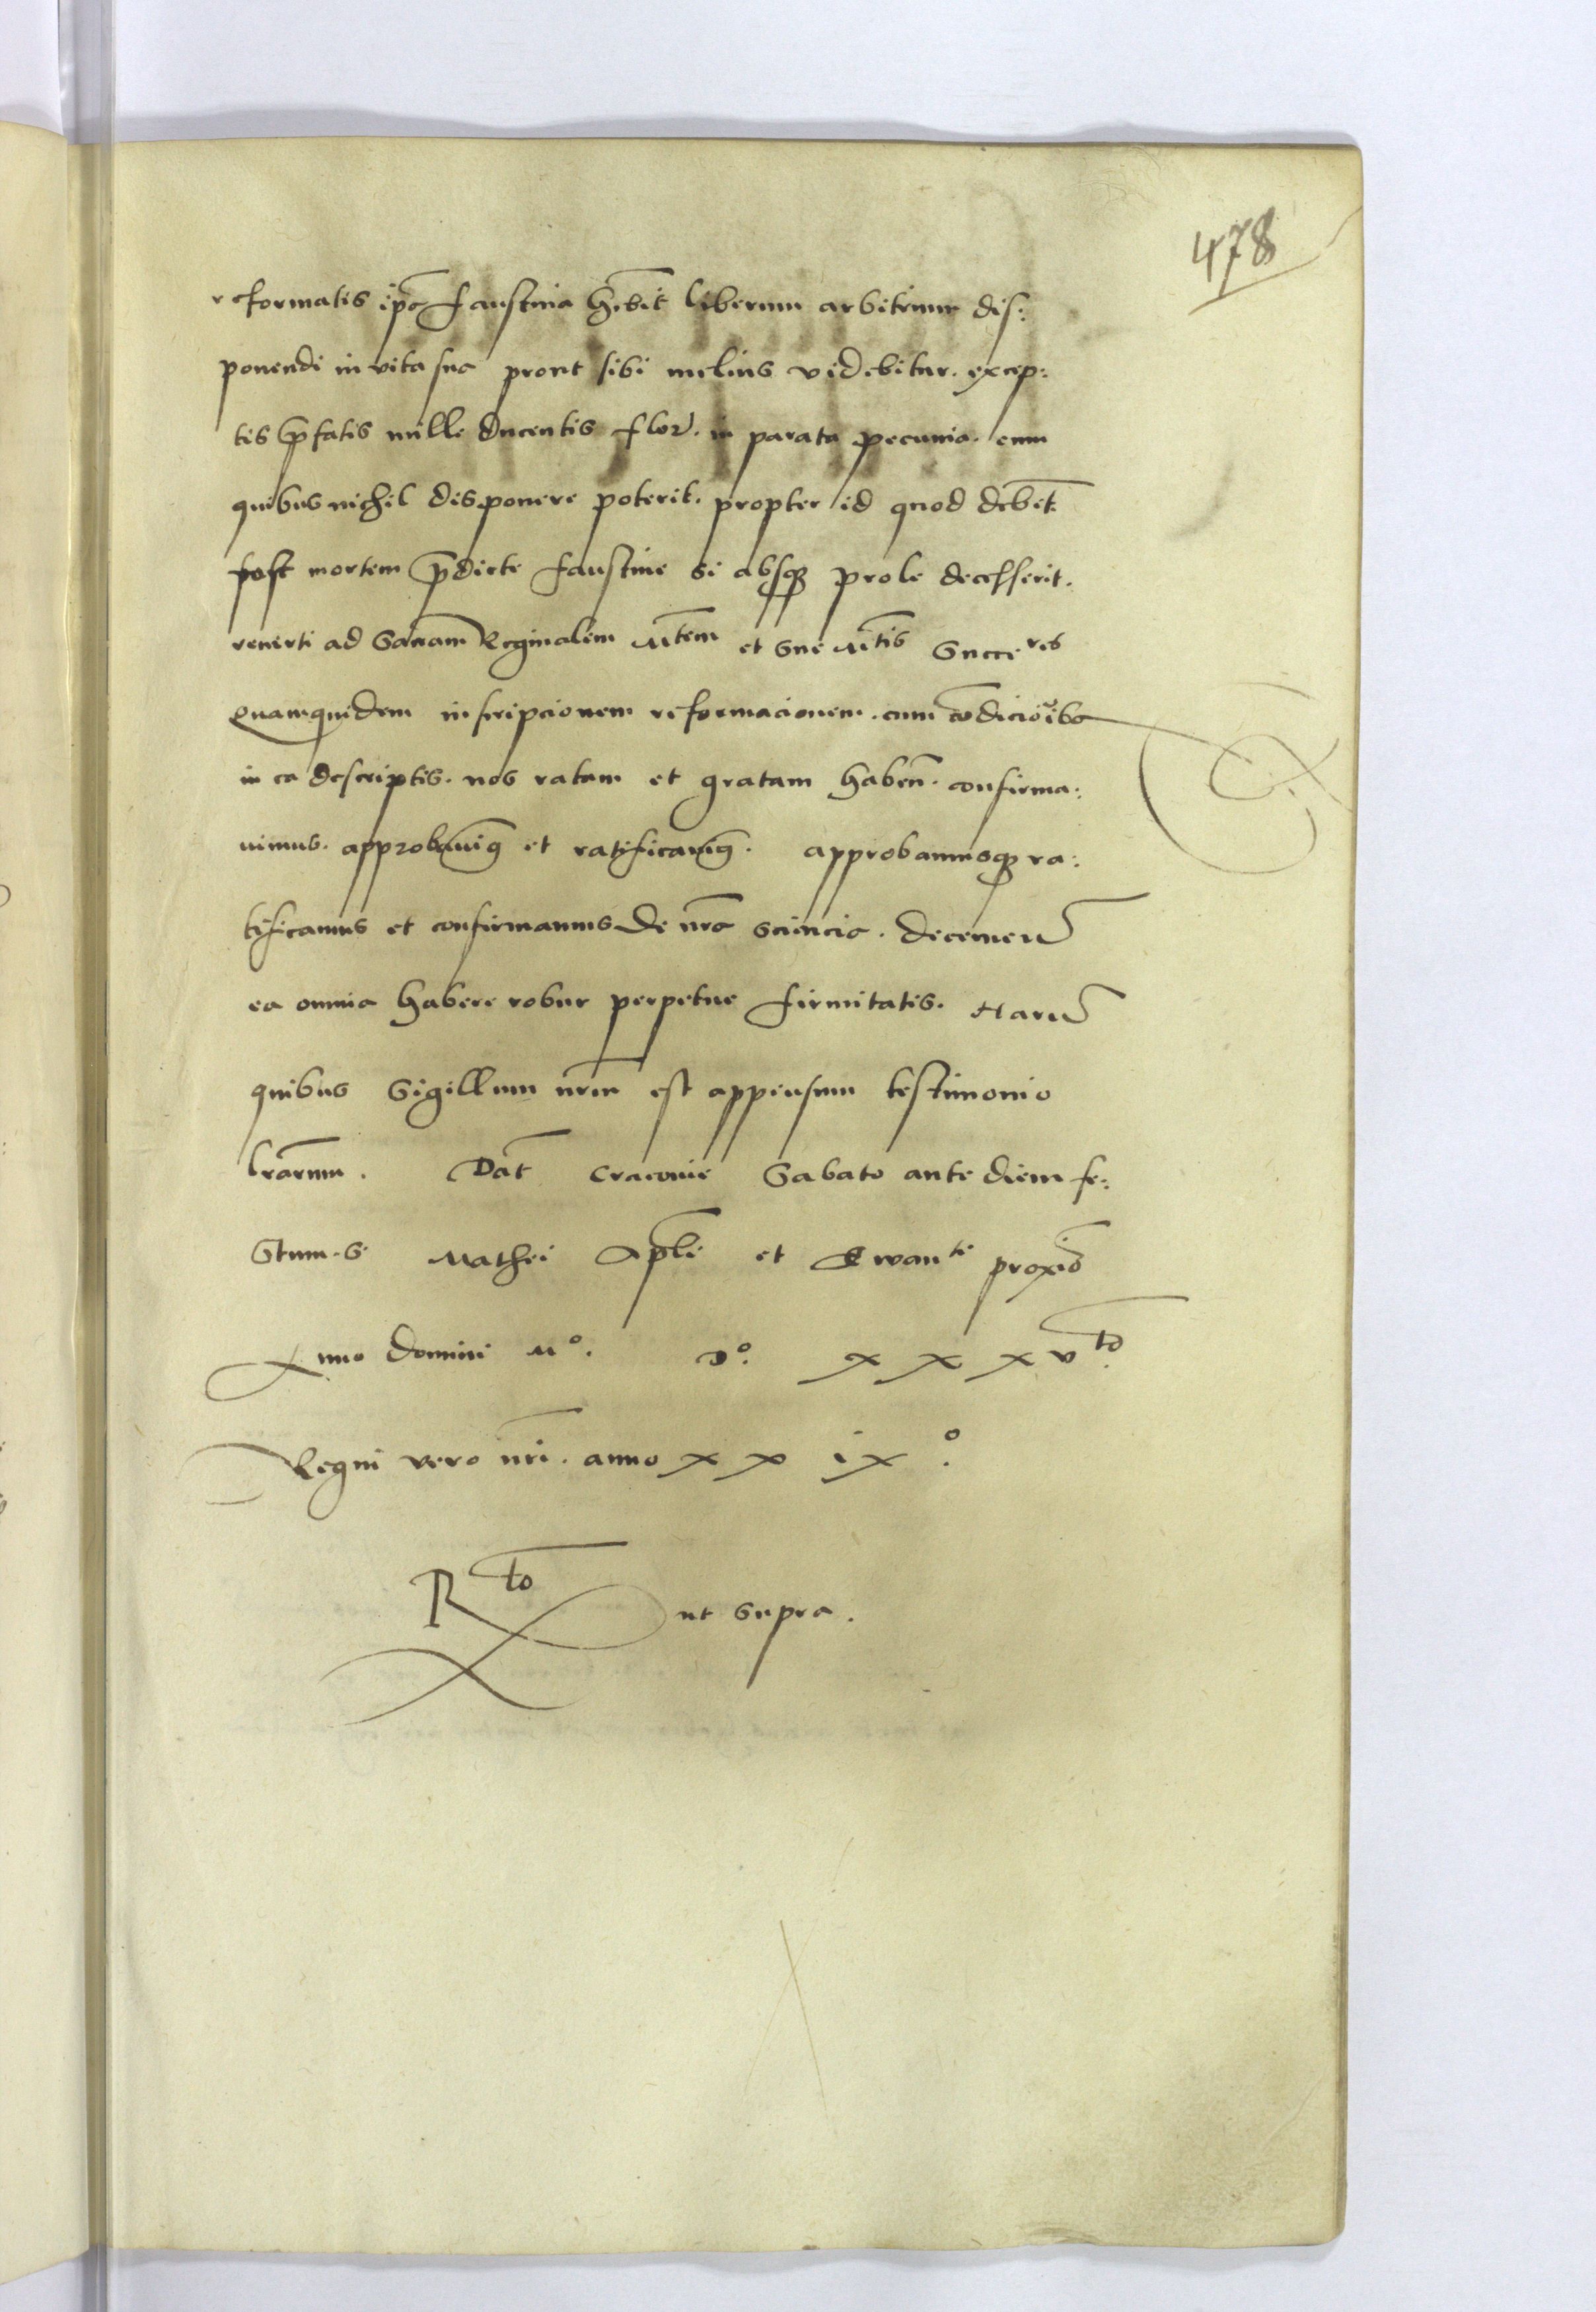 478
reformatis ip̄a Faustina hēbit liberum arbitrium dis:
ponendi in vita sua prout sibi melius videbitur. excep:
tis p̄fatis mille ducentis flor. in parata pecunia. cum
quibus nichil disponere poterit. propter id quod debīt
post mortem p̄dicte Faustine si absq prole decesserit.
reverti ad Sacram Reginalem Mtem et sue Mtis Succeres
Quamquidem inscripcionem reformacionem. cum cōdicioībs
in ea descriptis. nos ratam et gratam habeñ. confirma:
vimus. approbavimꝯ et ratificavimꝯ. approbamusq ra:
tificamus et confirmamus De nr̄a sciencia. decernen̄
ea omnia habere robur perpetue firmitatis. Harū
quibus Sigillum nr̄m est appensum testimonio
lr̄arum. Dat̄ Cracovie Sabato ante diem fe:
Stum. S. Mathei Apl̄i et Ewante proxīo
Anno domini Mº. Dº. x x x vto.
Regni vero nr̄i. anno x x i x º.
Rto ut supra.